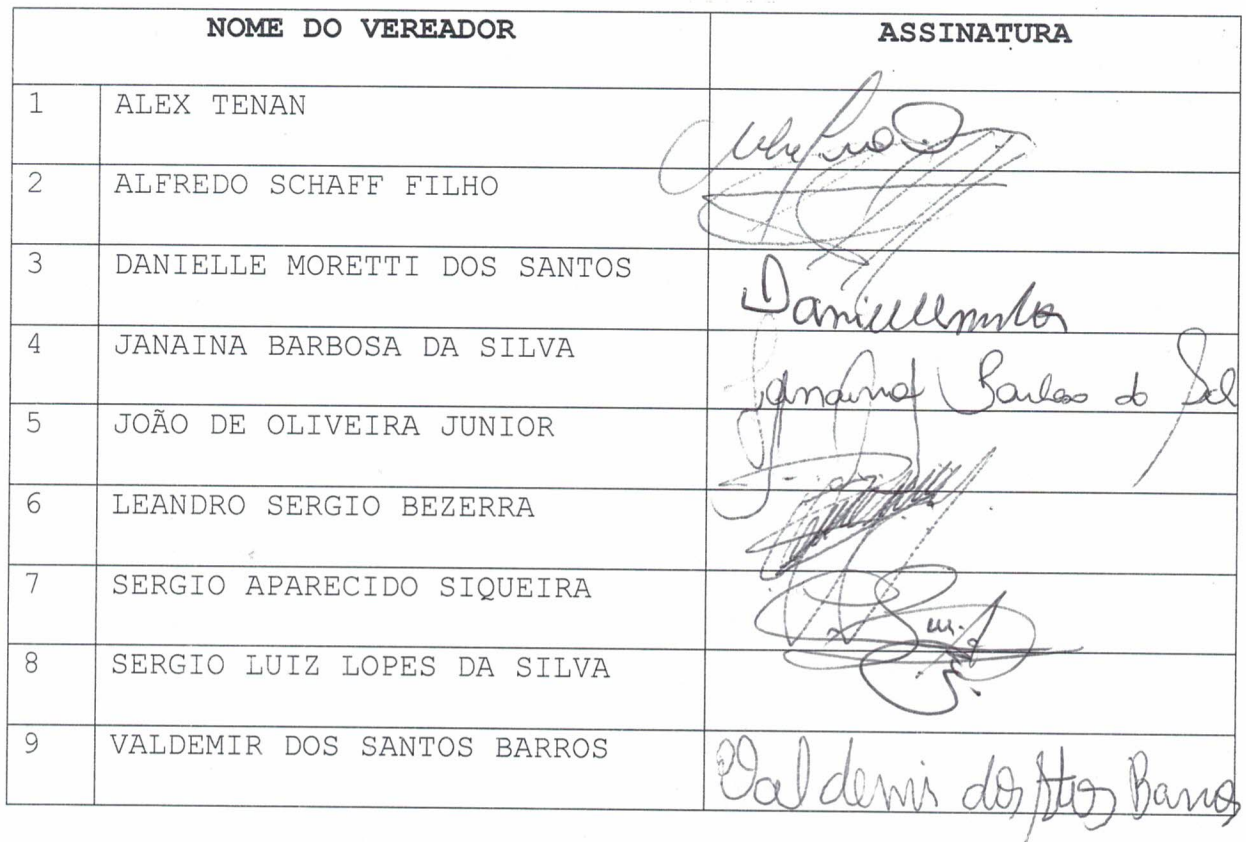 NOME DO VEREADOR ASSINATURA
1 ALEX TENAN
2 ALFREDO SCHAFF FILHO
3 DANIELLE MORETTI DOS SANTOS
4 JANAINA BARBOSA DA SILVA
Janaina Barbosa da
5 JOÃO DE OLIVEIRA JUNIOR
6 LEANDRO SERGIO BEZERRA
7 SERGIO APARECIDO SIQUEIRA
8 SERGIO LUIZ LOPES DA SILVA
9 VALDEMIR DOS SANTOS BARROS
Valdemir dos Stos Barros